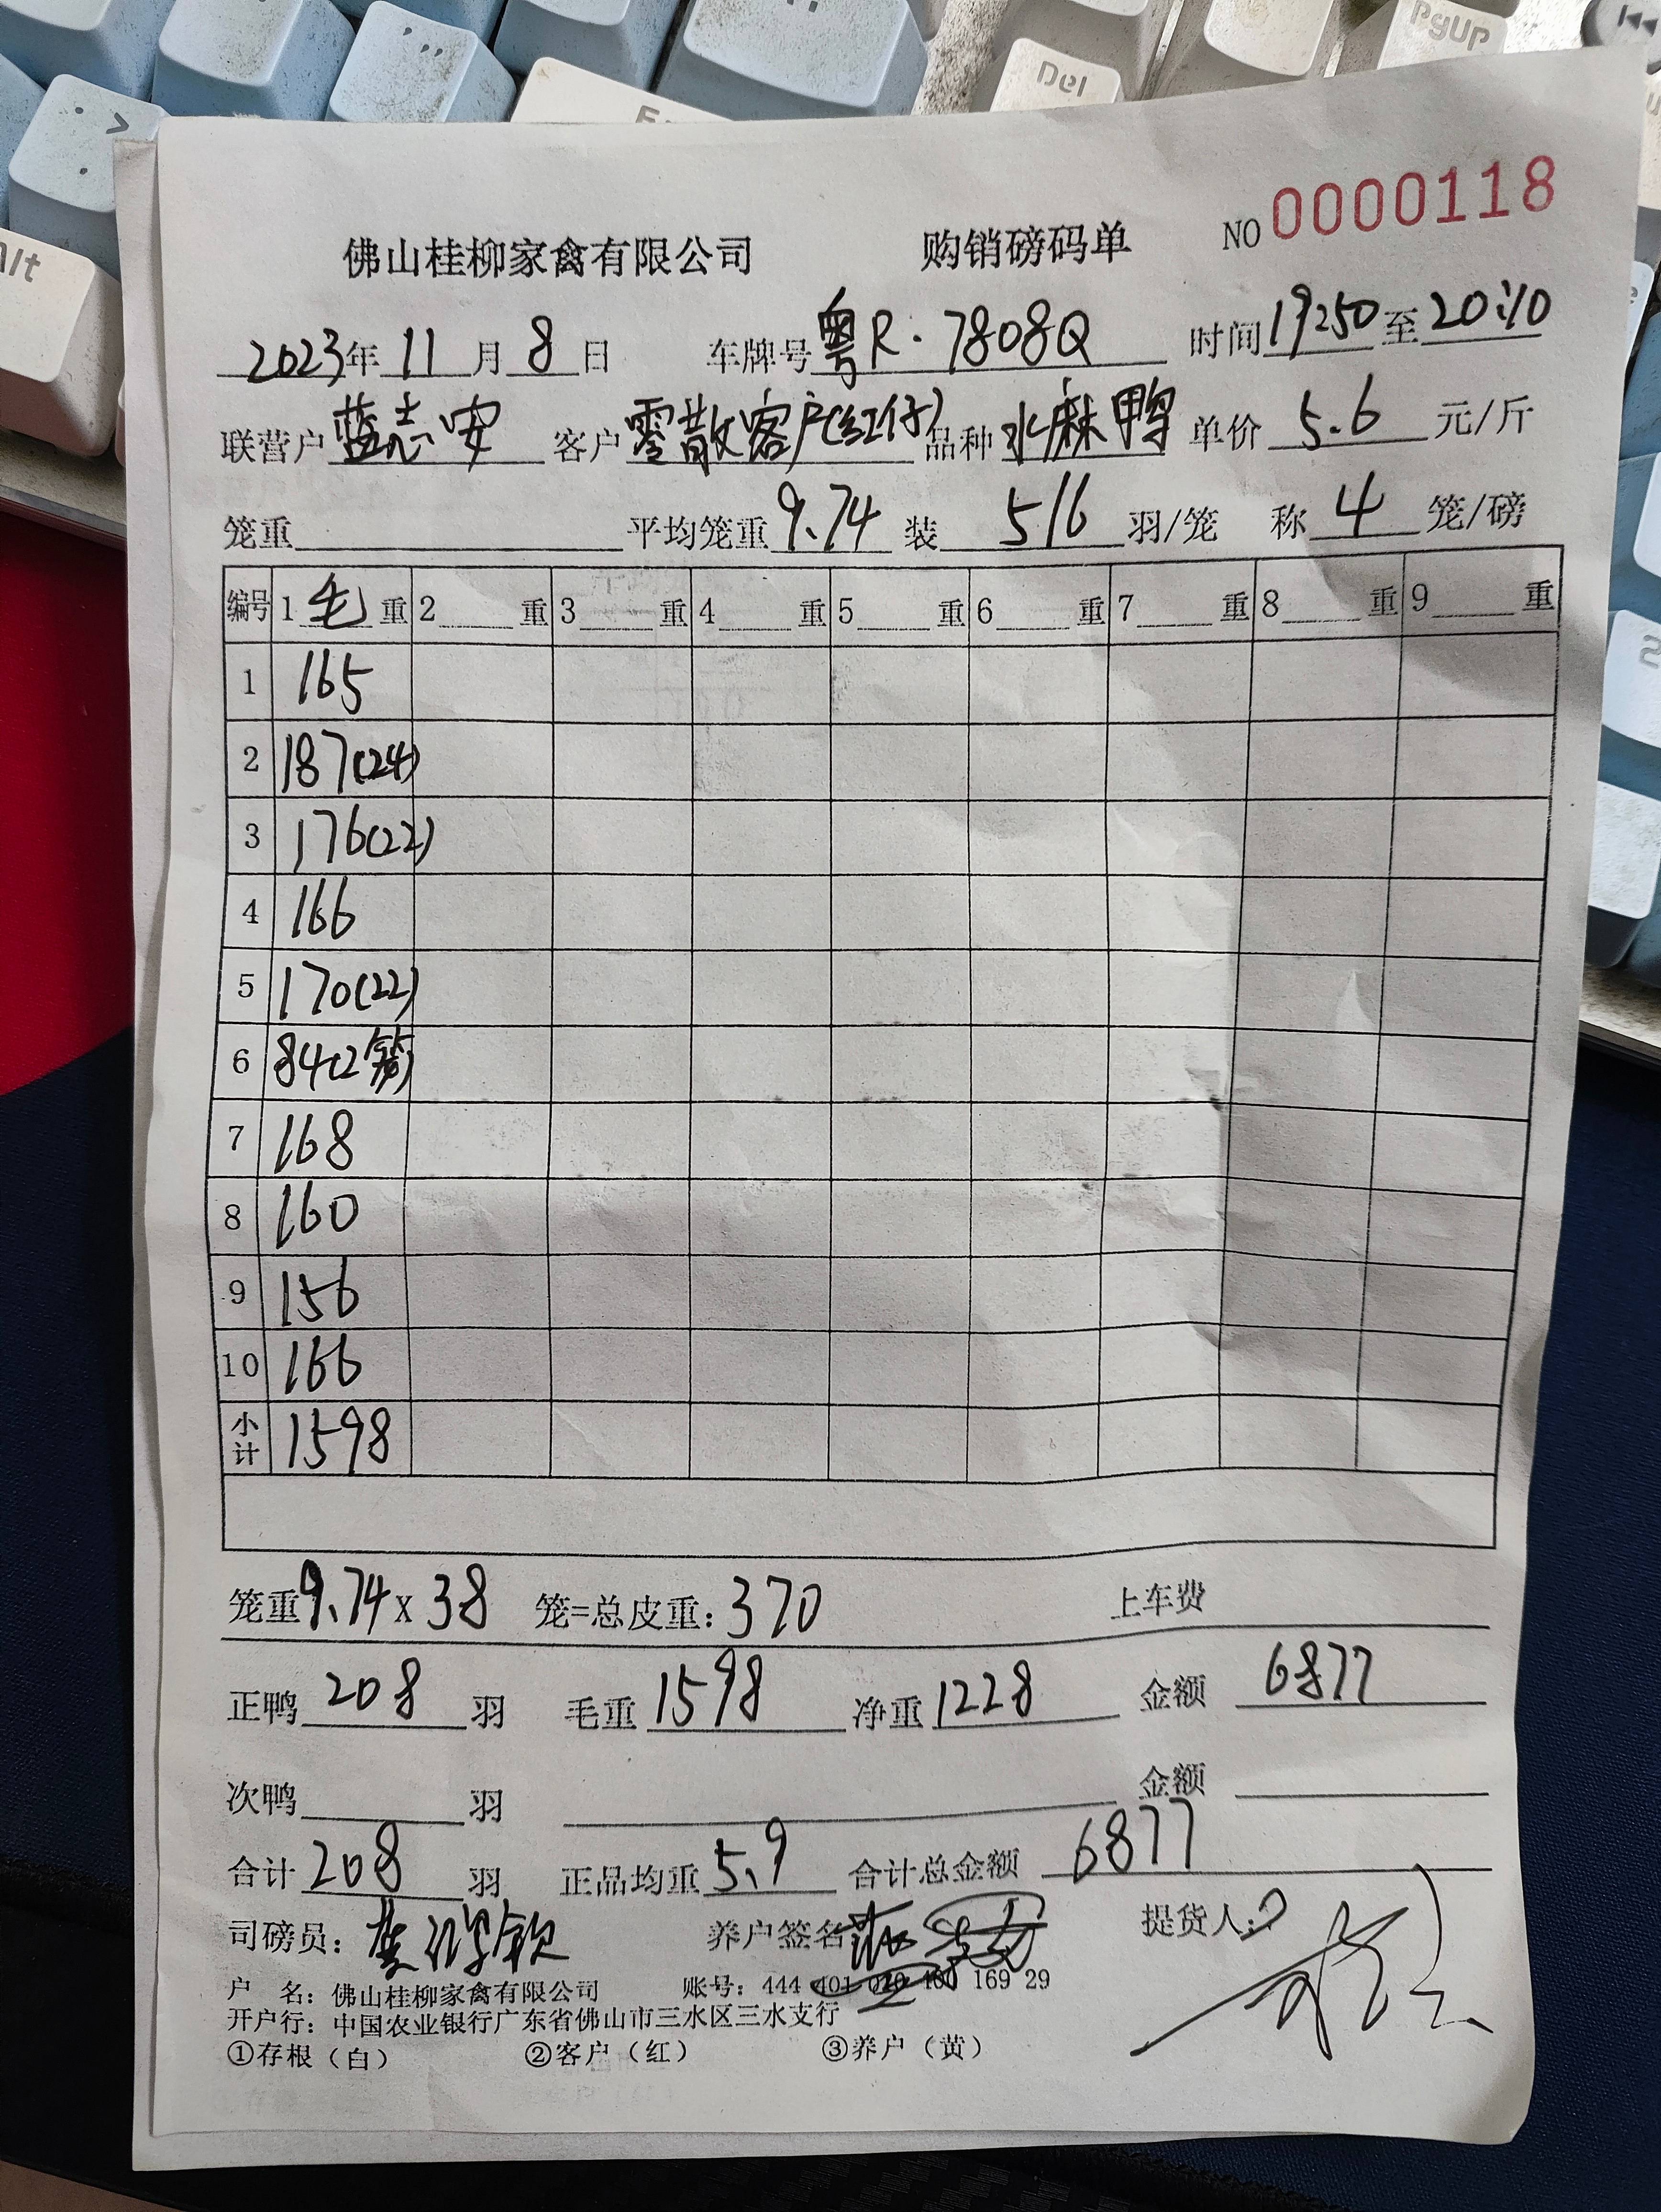 Del
PgUp
Alt
NO 0000118
佛山桂柳家禽有限公司 购销磅码单
2023年 11月 8日 车牌号 粤R·7808Q 时间 19:50 至 20:10
联营户 蓝志安 客户 零散客户(红仔) 品种 水麻鸭 单价 5.6 元/斤
笼重 平均笼重 9.74 装 5/6 羽/笼 称 4 笼/磅
编号 1 毛 重 2 重 3 重 4 重 5 重 6 重 7 重 8 重 9 重
1 165
2 187(24)
3 176(22)
4 166
5 170(22)
6 84(2笼)
7 168
8 160
9 156
10 166
小计 1598
笼重 9.74 x 38 笼=总皮重: 370 上车费
正鸭 208 羽 毛重 1598 净重 1228 金额 6877
次鸭 羽 金额
合计 208 羽 正品均重 5.9 合计总金额 6877
司磅员: 养户签名 提货人:
户 名: 佛山桂柳家禽有限公司 账号: 444 401 010 400 169 29
开户行: 中国农业银行广东省佛山市三水区三水支行
①存根(白) ②客户(红) ③养户(黄)